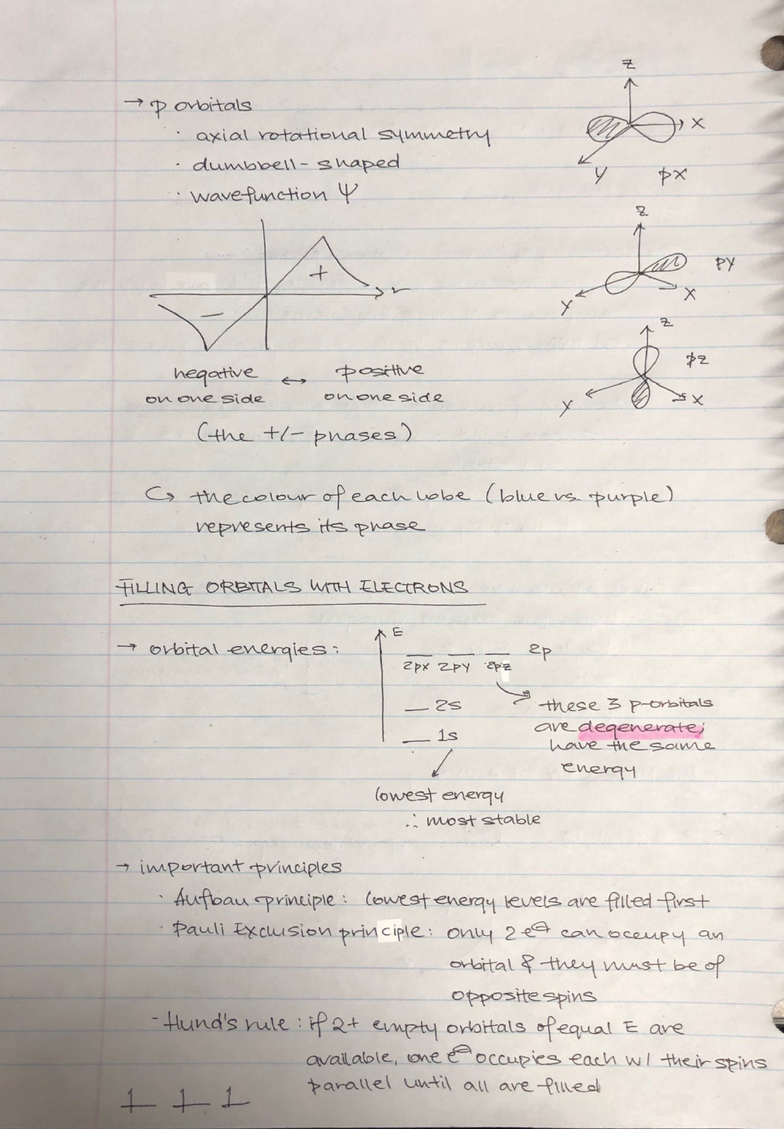 → p orbitals
· axial rotational symmetry
· dumbbell-shaped
· wavefunction Ψ
z
x
y
px
z
py
y
x
+
r
−
z
pz
y
x
negative ↔ positive
on one side on one side
(the +/- phases)
↪ the colour of each lobe (blue vs. purple)
represents its phase
FILLING ORBITALS WITH ELECTRONS
→ orbital energies:
E
2p
2px 2py 2pz
2s
1s
these 3 p-orbitals
are degenerate;
have the same
energy
lowest energy
∴ most stable
→ important principles
· Aufbau principle: lowest energy levels are filled first
· Pauli Exclusion principle: only 2 e⊖ can occupy an
orbital & they must be of
opposite spins
- Hund's rule: if 2+ empty orbitals of equal E are
available, one e⊖ occupies each w/ their spins
parallel until all are filled